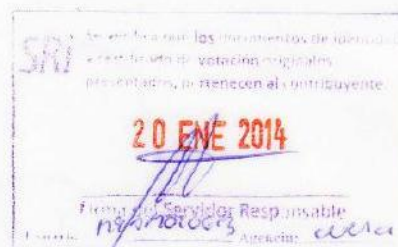 SRI
Se verifica que los documentos de identidad
y certificado de votación originales
presentados, pertenecen al contribuyente.
20 ENE 2014
Firma del Servidor Responsable
Agencia: